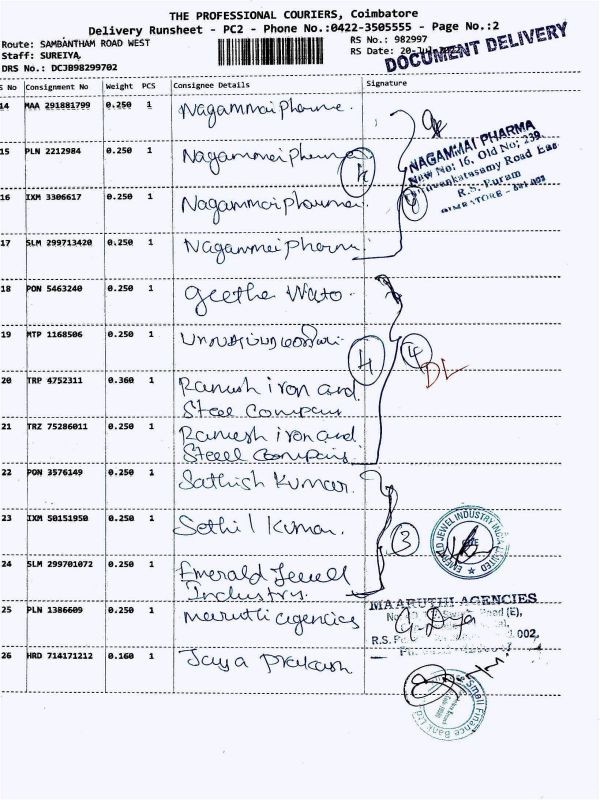 THE PROFESSIONAL COURIERS, Coimbatore
Delivery Runsheet - PC2 - Phone No.:0422-3505555 - Page No.:2
Route: SAMBANTHAM ROAD WEST
RS No.: 982997
Staff: SUREIYA,
RS Date: 20-Jul-2022
DRS No.: DCJB98299702
DOCUMENT DELIVERY
S No Consignment No Weight PCS Consignee Details Signature
14 MAA 291881799 0.250 1 Nagammai Pharme.
15 PLN 2212984 0.250 1 Nagammai Pharma
NAGAMMAI PHARMA
New No: 16, Old No: 239,
Thiruvenkatasamy Road East
R.S. Puram
COIMBATORE - 641 002
4
16 IXM 3306617 0.250 1 Nagammai Pharma
17 SLM 299713420 0.250 1 Nagammai Pharma
18 PON 5463240 0.250 1 Geetha Wato.
19 MTP 1168506 0.250 1
4 4
DL
20 TRP 4752311 0.360 1 Ramesh iron and
Steel Company
21 TRZ 75286011 0.250 1 Ramesh iron and
Steel Company.
22 PON 3576149 0.250 1 Sathish Kumar.
23 IXM 50151950 0.250 1 Sethil Kumar.
3
EMERALD JEWEL INDUSTRY INDIA LIMITED
24 SLM 299701072 0.250 1 Emerald Jewell
Industry.
25 PLN 1386609 0.250 1 Maruthi agencies
MAARUTHI AGENCIES
Road (E),
R.S.
002.
26 HRD 714171212 0.160 1 Jaya Prakash
Small Finance Bank Ltd